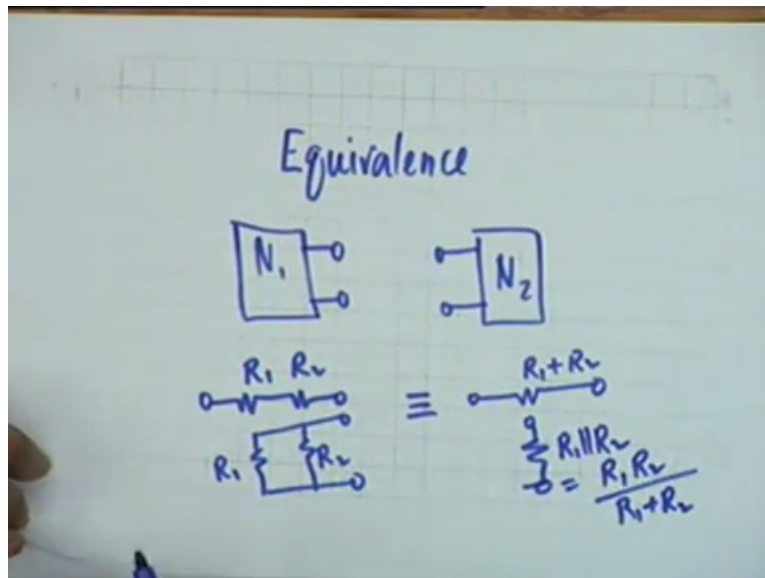 Equivalence
N₁ N₂
R₁ R₂ ≡ R₁+R₂
R₁ R₂ R₁||R₂
= R₁R₂/R₁+R₂